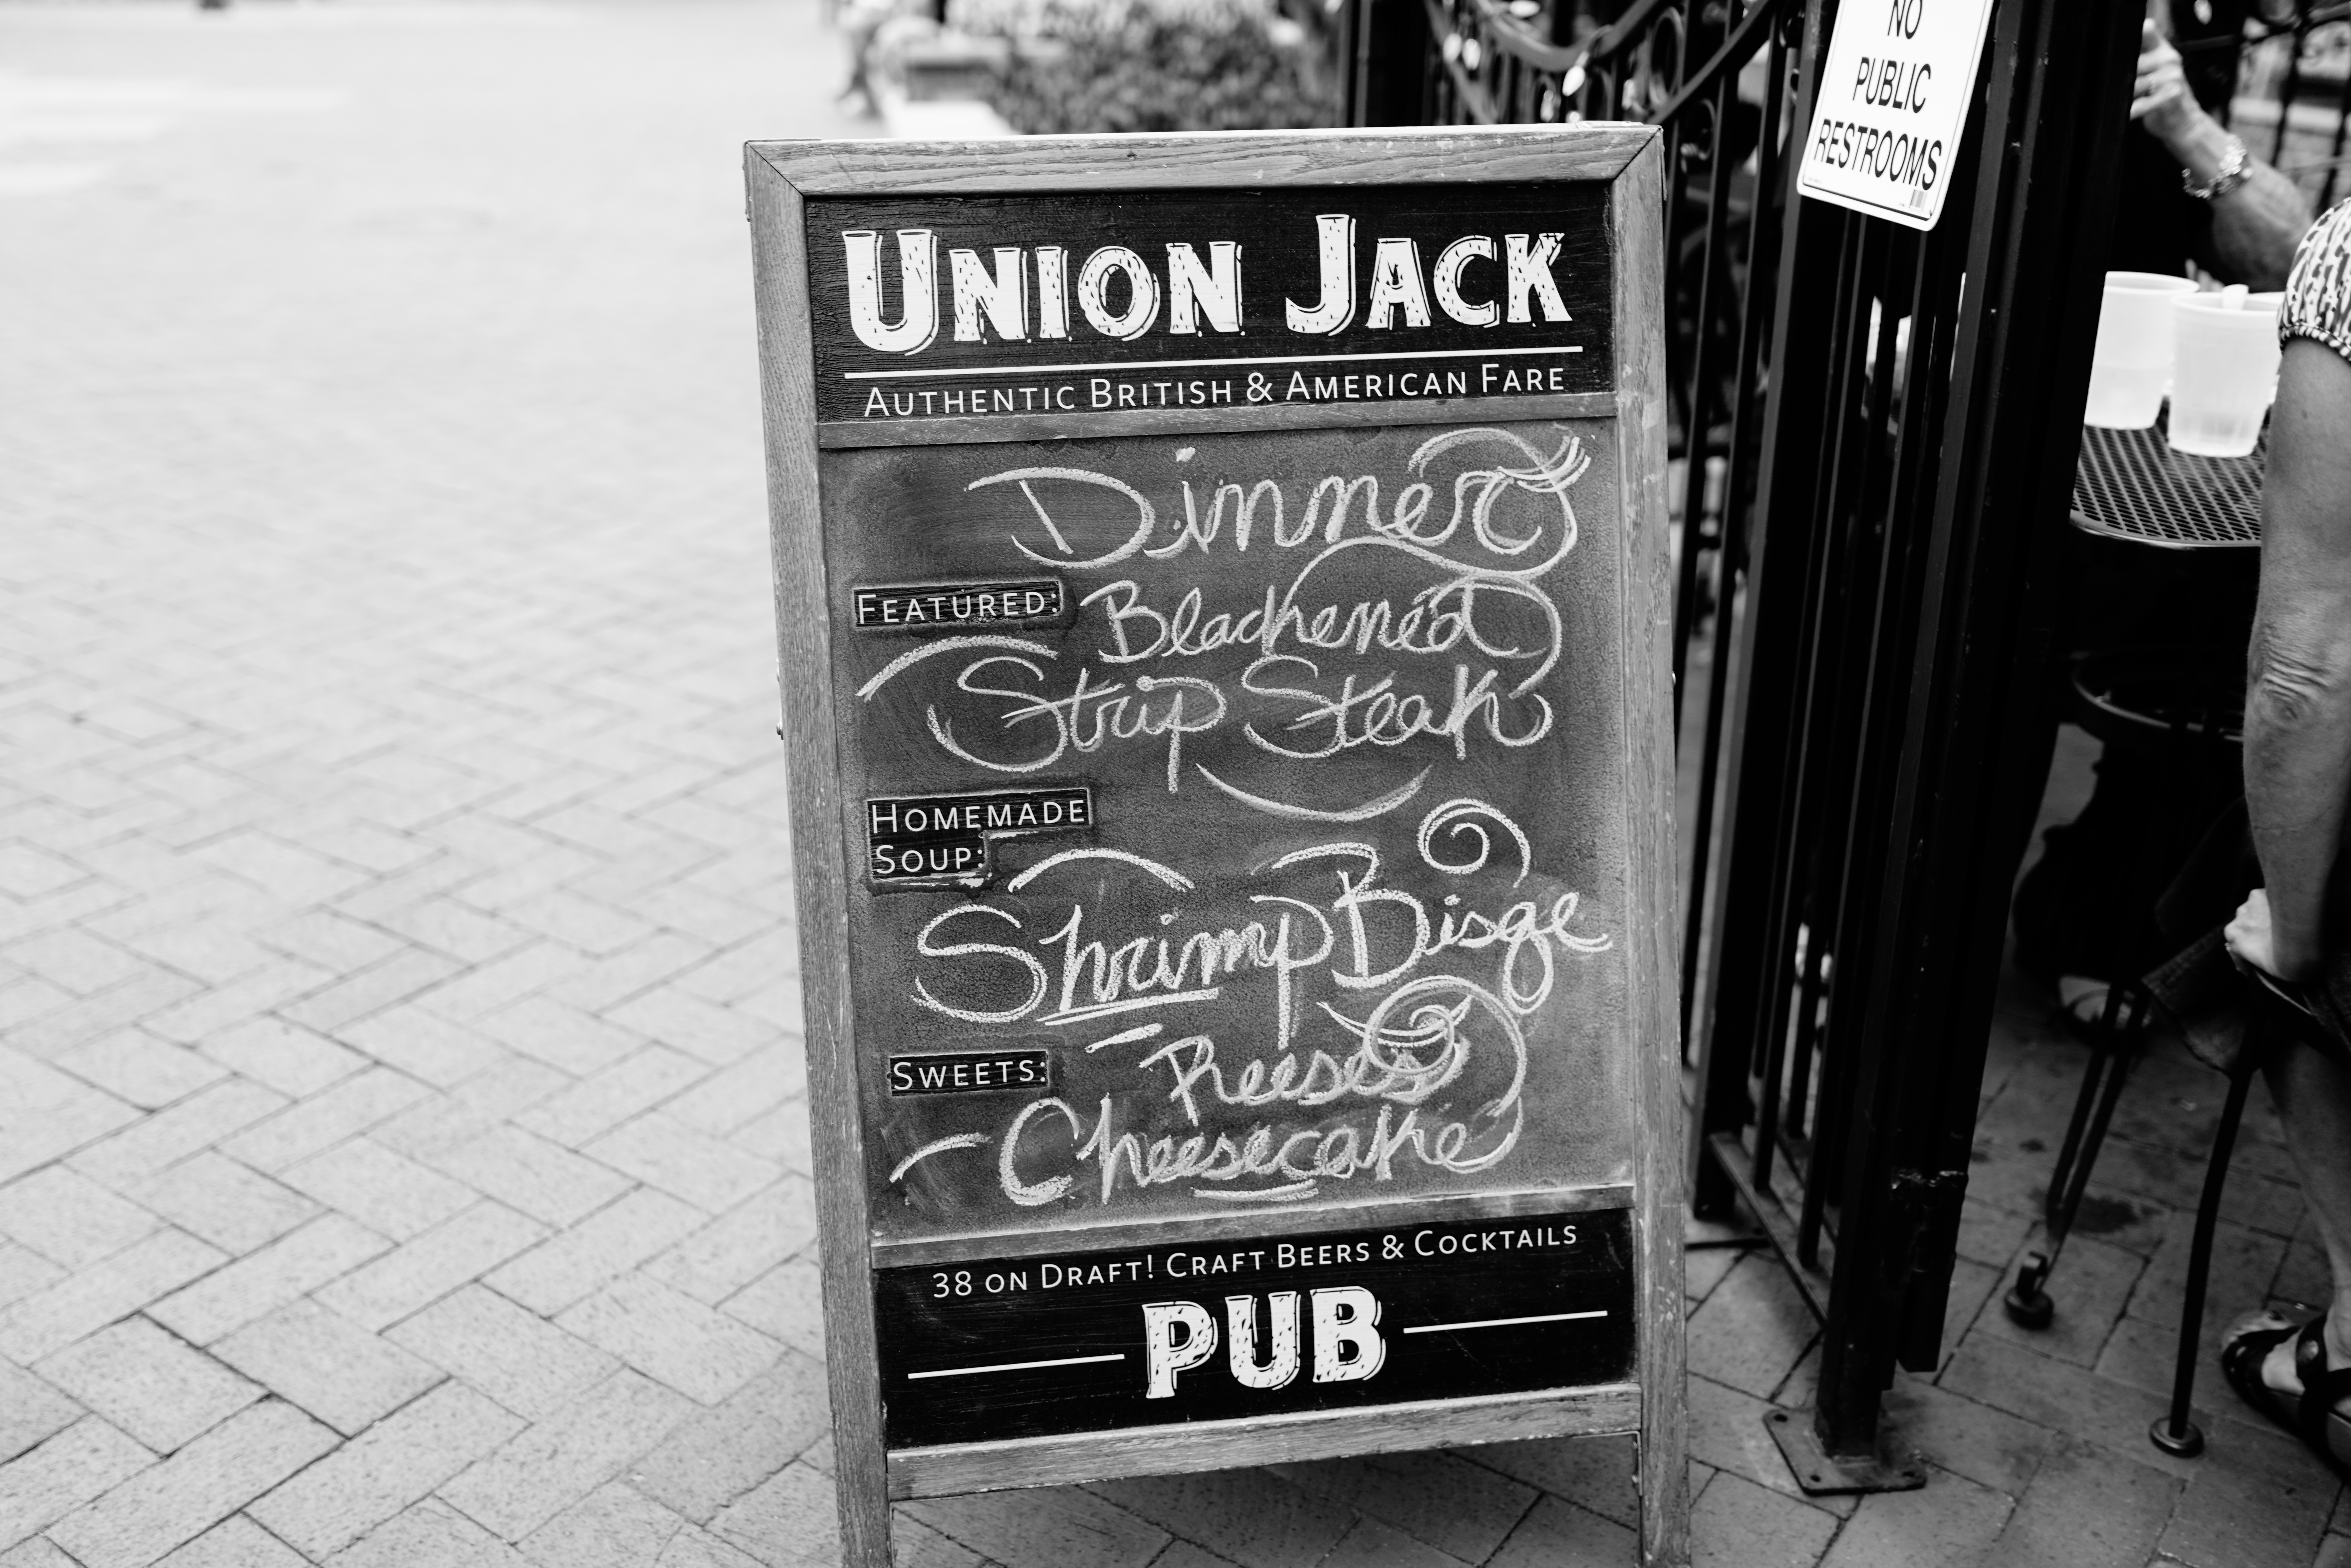 NO
PUBLIC
RESTROOMS
UNION JACK
AUTHENTIC BRITISH & AMERICAN FARE
Dinner
FEATURED: Blackened
Strip Steak
HOMEMADE
SOUP:
Shrimp Bisqe
SWEETS: Reeses
Cheesecake
38 ON DRAFT! CRAFT BEERS & COCKTAILS
PUB